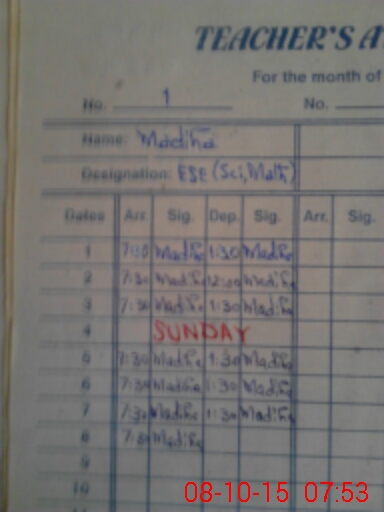 TEACHER'S A
For the month of
No. 1 No.
Name: Madiha
Designation: ESE (Sci, Math)
Dates Arr. Sig. Dep. Sig. Arr. Sig.
1 7:30 Madiha 1:30 Madiha
2 7:30 Madiha 12:00 Madiha
3 7:30 Madiha 1:30 Madiha
4 SUNDAY
5 7:30 Madiha 1:30 Madiha
6 7:30 Madiha 1:30 Madiha
7 7:30 Madiha 1:30 Madiha
8 7:30 Madiha
9
10
08-10-15 07:53